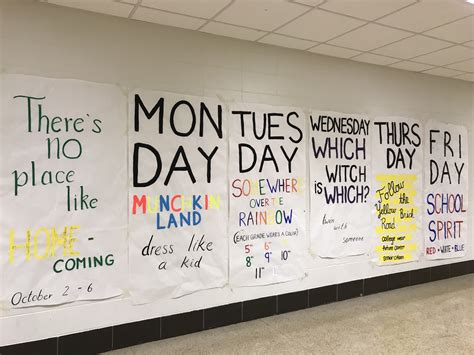 There's
no
place
like
HOME-
COMING
October 2-6
MON
DAY
MUNCHKIN
LAND
dress like
a kid
TUES
DAY
SOMEWHERE
OVER THE
RAINBOW
(EACH GRADE WEARS A COLOR)
5" 6"
11"
WEDNESDAY
WHICH
WITCH
is WHICH?
twin with
someone
THURS
DAY
Follow the
Yellow Brick
Road
College wear
FRI
DAY
SCHOOL
SPIRIT
RED • WHITE • BLUE